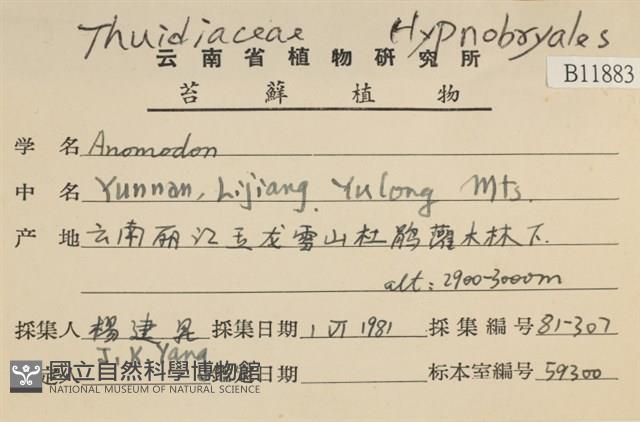 Thuidiaceae Hypnobryales
云南省植物研究所
B11883
苔蘚植物
学名 Anomodon
中名 Yunnan, Lijiang, Yulong Mts.
产地 云南丽江玉龙雪山杜鹃灌木林下.
alt: 2900-3000m
採集人 楊建昆 採集日期 1 VI 1981 採集編号 81-307
J. K. Yang
定人 定日期 标本室編号 59300
國立自然科學博物館
NATIONAL MUSEUM OF NATURAL SCIENCE